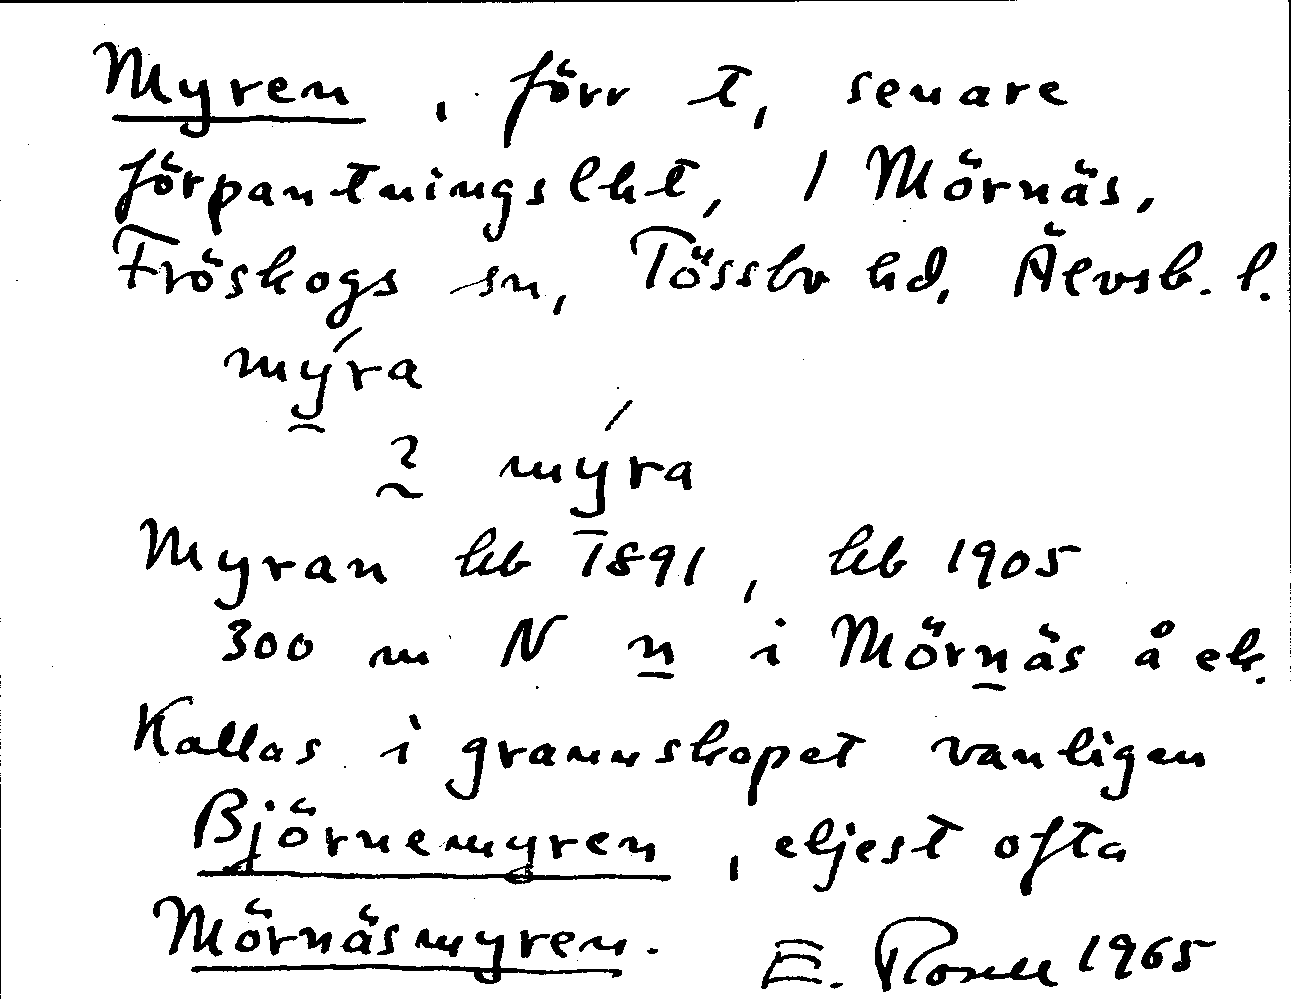 Myren, förr t, senare
förpantningslht, 1 Mörnäs,
Fröskogs sn, Tössbo hd, Älvsb. l.
mýra
2 mýra
Myran hb 1891, hb 1905
300 m N n i Mörnäs å ek.
Kallas i grannskapet vanligen
Björnemyren, eljest ofta
Mörnäsmyren. E. Rosell 1965